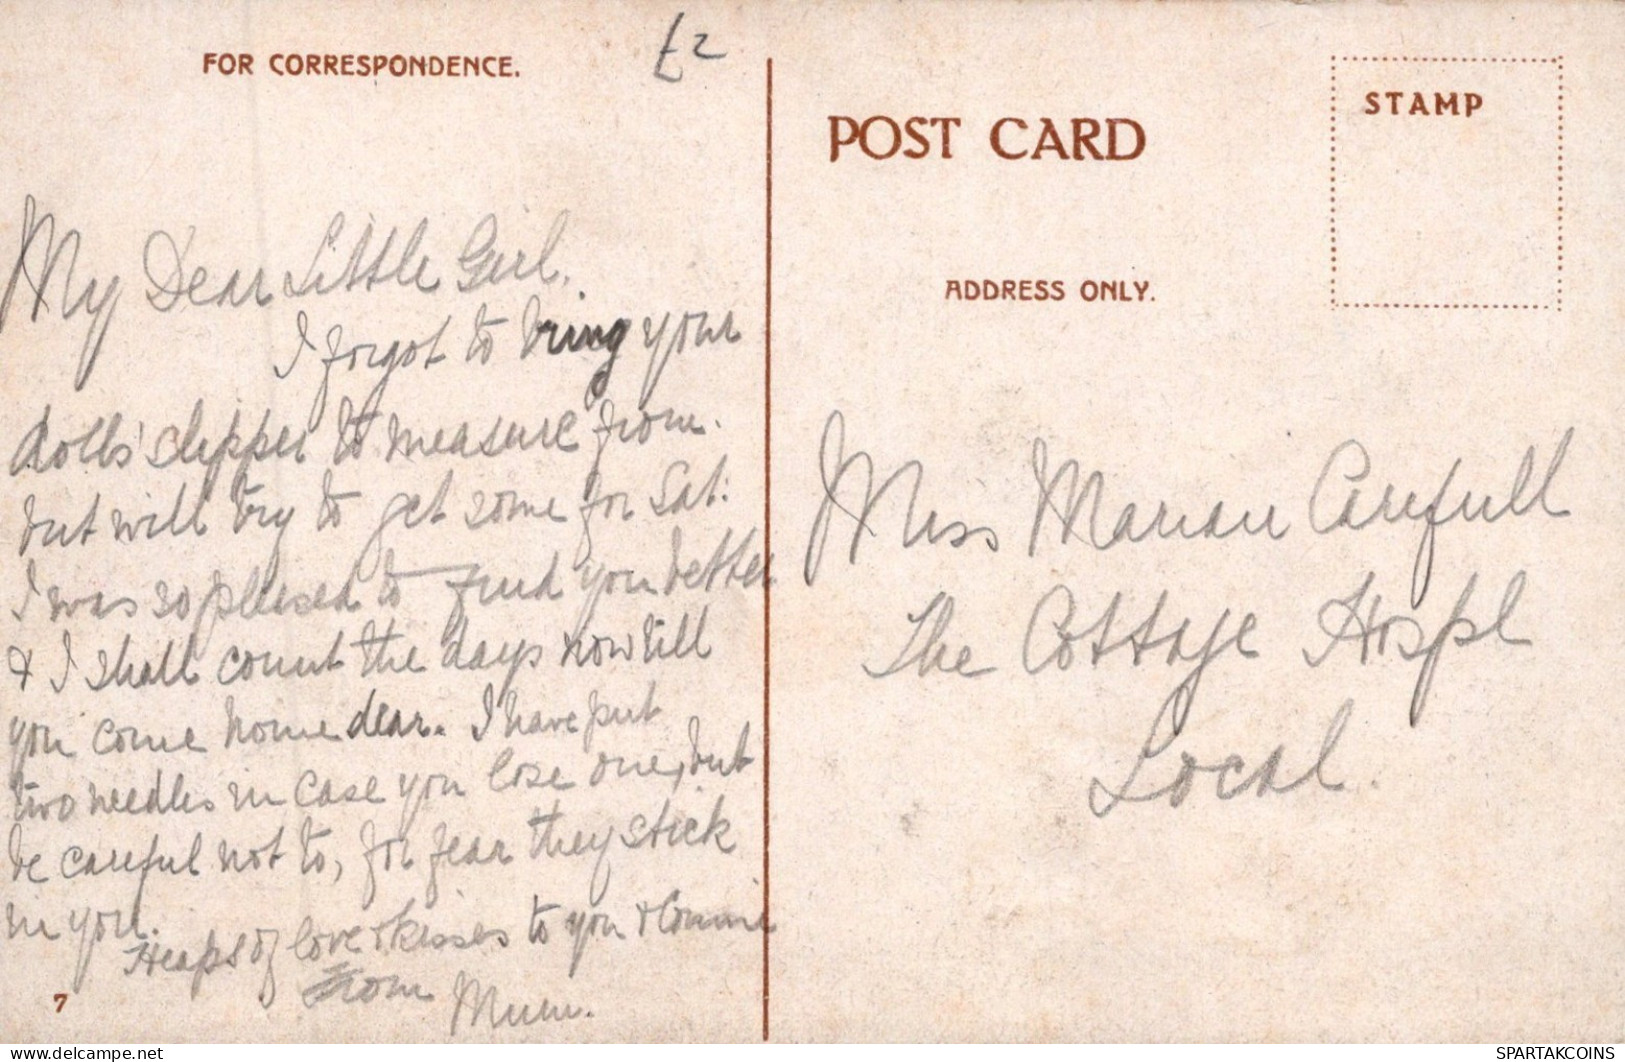 FOR CORRESPONDENCE.
£2
My Dear Little Girl.
I forgot to bring your
dolls' slipper to measure from.
but will try to get some for Sat:
I was so pleased to find you better
& I shall count the days now till
you come home dear. I have put
two needles in case you lose one, but
be careful not to, for fear they stick
in you.
Heaps of love & kisses to you & Connie
From Mum.
7
POST CARD
STAMP
ADDRESS ONLY.
Miss Marian Carefull
The Cottage Hospl
Local.
delcampe.net
SPARTAKCOINS